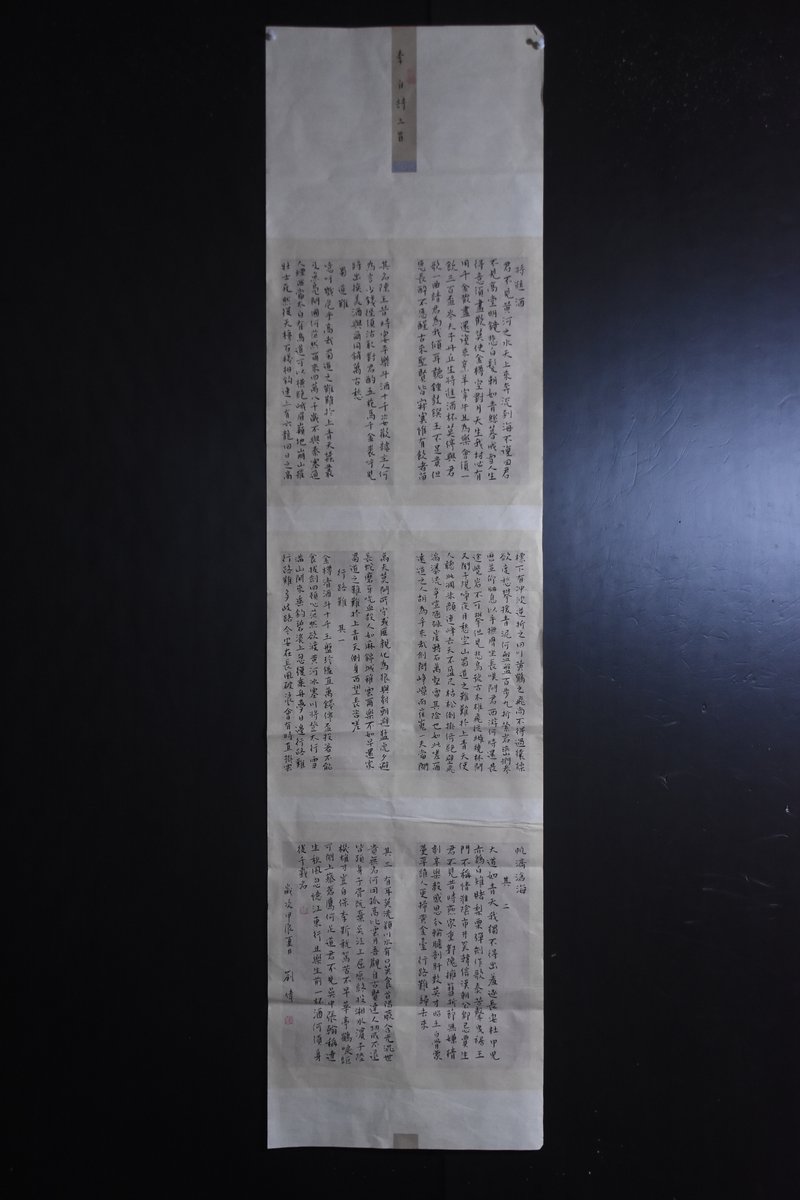 李白詩三首
將進酒
君不見黃河之水天上來奔流到海不復回君
不見高堂明鏡悲白髮朝如青絲暮成雪人生
得意須盡歡莫使金樽空對月天生我材必有
用千金散盡還復來烹羊宰牛且為樂會須一
飲三百盃岑夫子丹丘生將進酒杯莫停與君
歌一曲請君為我傾耳聽鐘鼓饌玉不足貴但
愿長醉不愿醒古來聖賢皆寂寞惟有飲者留
其名陳王昔時宴平樂斗酒十千恣歡謔主人何
為言少錢徑須沽取對君酌五花馬千金裘呼兒
將出換美酒與爾同銷萬古愁
蜀道難
噫吁戲危乎高哉蜀道之難難於上青天蠶叢
及魚鳧開國何茫然爾來四萬八千歲不與秦塞通
人煙西當太白有鳥道可以橫絕峨眉巔地崩山摧
壯士死然後天梯石棧相鉤連上有六龍回日之高
標下有沖波逆折之回川黃鶴之飛尚不得過猿猱
欲度愁攀援青泥何盤盤百步九折縈岩巒捫參
歷井仰脅息以手撫膺坐長嘆問君西游何時還畏
途巉岩不可攀但見悲鳥號古木雄飛從雌繞林間
又聞子規啼夜月愁空山蜀道之難難於上青天使
人聽此凋朱顏連峰去天不盈尺枯松倒掛倚絕壁飛
湍瀑流爭喧豗砯崖轉石萬壑雷其險也如此嗟爾
遠道之人胡為乎來哉劍閣崢嶸而崔嵬一夫當關
萬夫莫開所守或匪親化為狼與豺朝避猛虎夕避
長蛇磨牙吮血殺人如麻錦城雖雲樂不如早還家
蜀道之難難於上青天側身西望長咨嗟
行路難 其一
金樽清酒斗十千玉盤珍饈直萬錢停盃投箸不能
食拔劍四顧心茫然欲渡黃河冰塞川將登太行雪
滿山閑來垂釣碧溪上忽復乘舟夢日邊行路難
行路難多歧路今安在長風破浪會有時直掛雲
帆濟滄海
其二
大道如青天我獨不得出羞逐長安社中兒
赤雞白雉賭梨栗彈劍作歌奏苦聲曳裾王
門不稱情淮陰市井笑韓信漢朝公卿忌賈生
君不見昔時燕家重郭隗擁篲折節無嫌猜
劇辛樂毅感恩分輸肝剖膽效英才昭王白骨縈
蔓草誰人更掃黃金臺行路難歸去來
其三 有耳莫洗潁川水有口莫食首陽蕨含光混世
貴無名何用孤高比雲月吾觀自古賢達人功成不退
皆殞身子胥既棄吳江上屈原終投湘水濱陸
機雄才豈自保李斯稅駕苦不早華亭鶴唳詎
可聞上蔡蒼鷹何足道君不見吳中張翰稱達
生秋風忽憶江東行且樂生前一杯酒何須身
後千載名
歲次甲辰夏日 劉